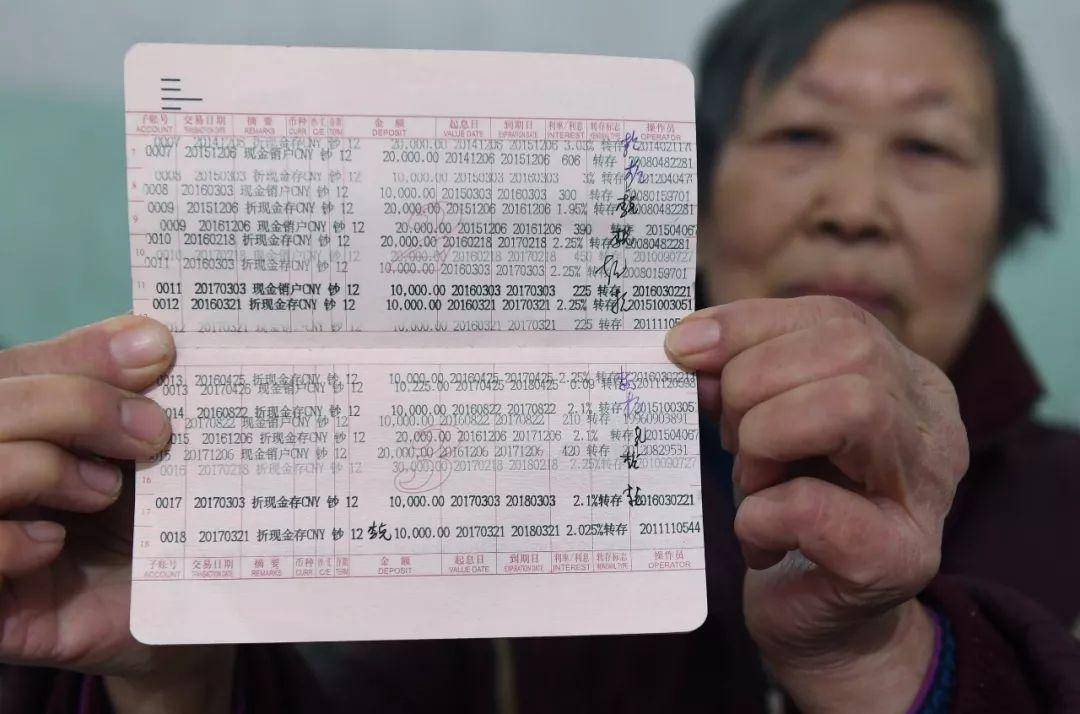 子账号 交易日期 摘要 币种 钞汇 存期 金额 起息日 到期日 利率/利息 转存标志 操作员
ACCOUNT TRANSACTION DATE REMARKS CURR C/E TERM DEPOSIT VALUE DATE EXPIRATION DATE INTEREST RENEWAL TYPE OPERATOR
0007 折现金存CNY 钞 12 20,000.00 20141206 20151206 3.03% 转存
7 0007 20151206 现金销户CNY 钞 12 20,000.00 20141206 20151206 606 转存 20080482281
0008 20150303 折现金存CNY 钞 12 10,000.00 20150303 20160303 3% 转存
8 0008 20160303 现金销户CNY 钞 12 10,000.00 20150303 20160303 300 转存 20080159701
0009 20151206 折现金存CNY 钞 12 20,000.00 20151206 20161206 1.95% 转存 20080482281
9 0009 20161206 现金销户CNY 钞 12 20,000.00 20151206 20161206 390 转存 201504067
0010 20160218 折现金存CNY 钞 12 20,000.00 20160218 20170218 2.25% 转存 20080482281
10 0010 20170218 现金销户CNY 钞 12 20,000.00 20160218 20170218 450 转存 2010090727
0011 20160303 折现金存CNY 钞 12 10,000.00 20160303 20170303 2.25% 转存 20080159701
11 0011 20170303 现金销户CNY 钞 12 10,000.00 20160303 20170303 225 转存 2016030221
0012 20160321 折现金存CNY 钞 12 10,000.00 20160321 20170321 2.25% 转存 20151003051
0012 20170321 现金销户CNY 钞 12 10,000.00 20160321 20170321 225 转存
0013 20160425 折现金存CNY 钞 12 10,000.00 20160425 20170425 2.25% 转存 2016030221
0013 20170426 现金销户CNY 钞 12 10,225.00 20170425 20180425 0.09 转存
0014 20160822 折现金存CNY 钞 12 10,000.00 20160822 20170822 2.1% 转存 20151003051
20170822 现金销户CNY 钞 12 10,000.00 20160822 20170822 210 转存 19960903891
0015 20161206 折现金存CNY 钞 12 20,000.00 20161206 20171206 2.1% 转存 201504067
15 20171206 现金销户CNY 钞 12 20,000.00 20161206 20171206 420 转存
0016 20170218 折现金存CNY 钞 12 30,000.00 20170218 20180218 2.25% 转存 2010090727
16
17 0017 20170303 折现金存CNY 钞 12 10,000.00 20170303 20180303 2.1% 转存 2016030221
18 0018 20170321 折现金存CNY 钞 12 10,000.00 20170321 20180321 2.025% 转存 2011110544
子账号 交易日期 摘要 币种 钞汇 存期 金额 起息日 到期日 利率/利息 转存标志 操作员
ACCOUNT TRANSACTION DATE REMARKS CURR C/E TERM DEPOSIT VALUE DATE EXPIRATION DATE INTEREST RENEWAL TYPE OPERATOR